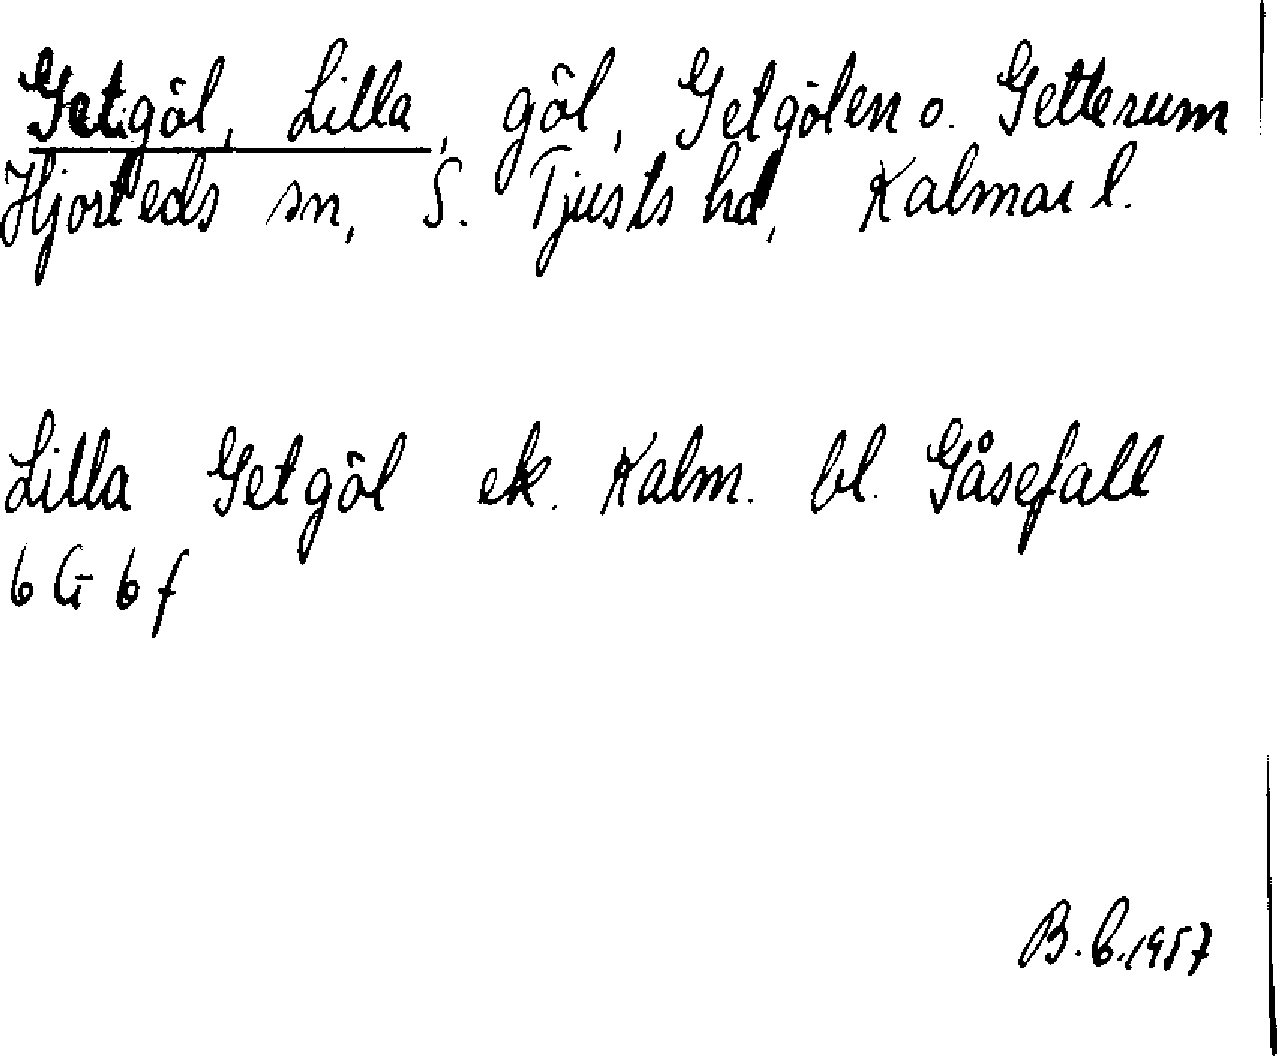 Getgöl, Lilla, göl, Getgölen o. Getterum
Hjorteds sn, S. Tjusts hd, Kalmar l.
Lilla Getgöl ek. Kalm. bl. Gåsefall
6 G 6 f
B.C.1957